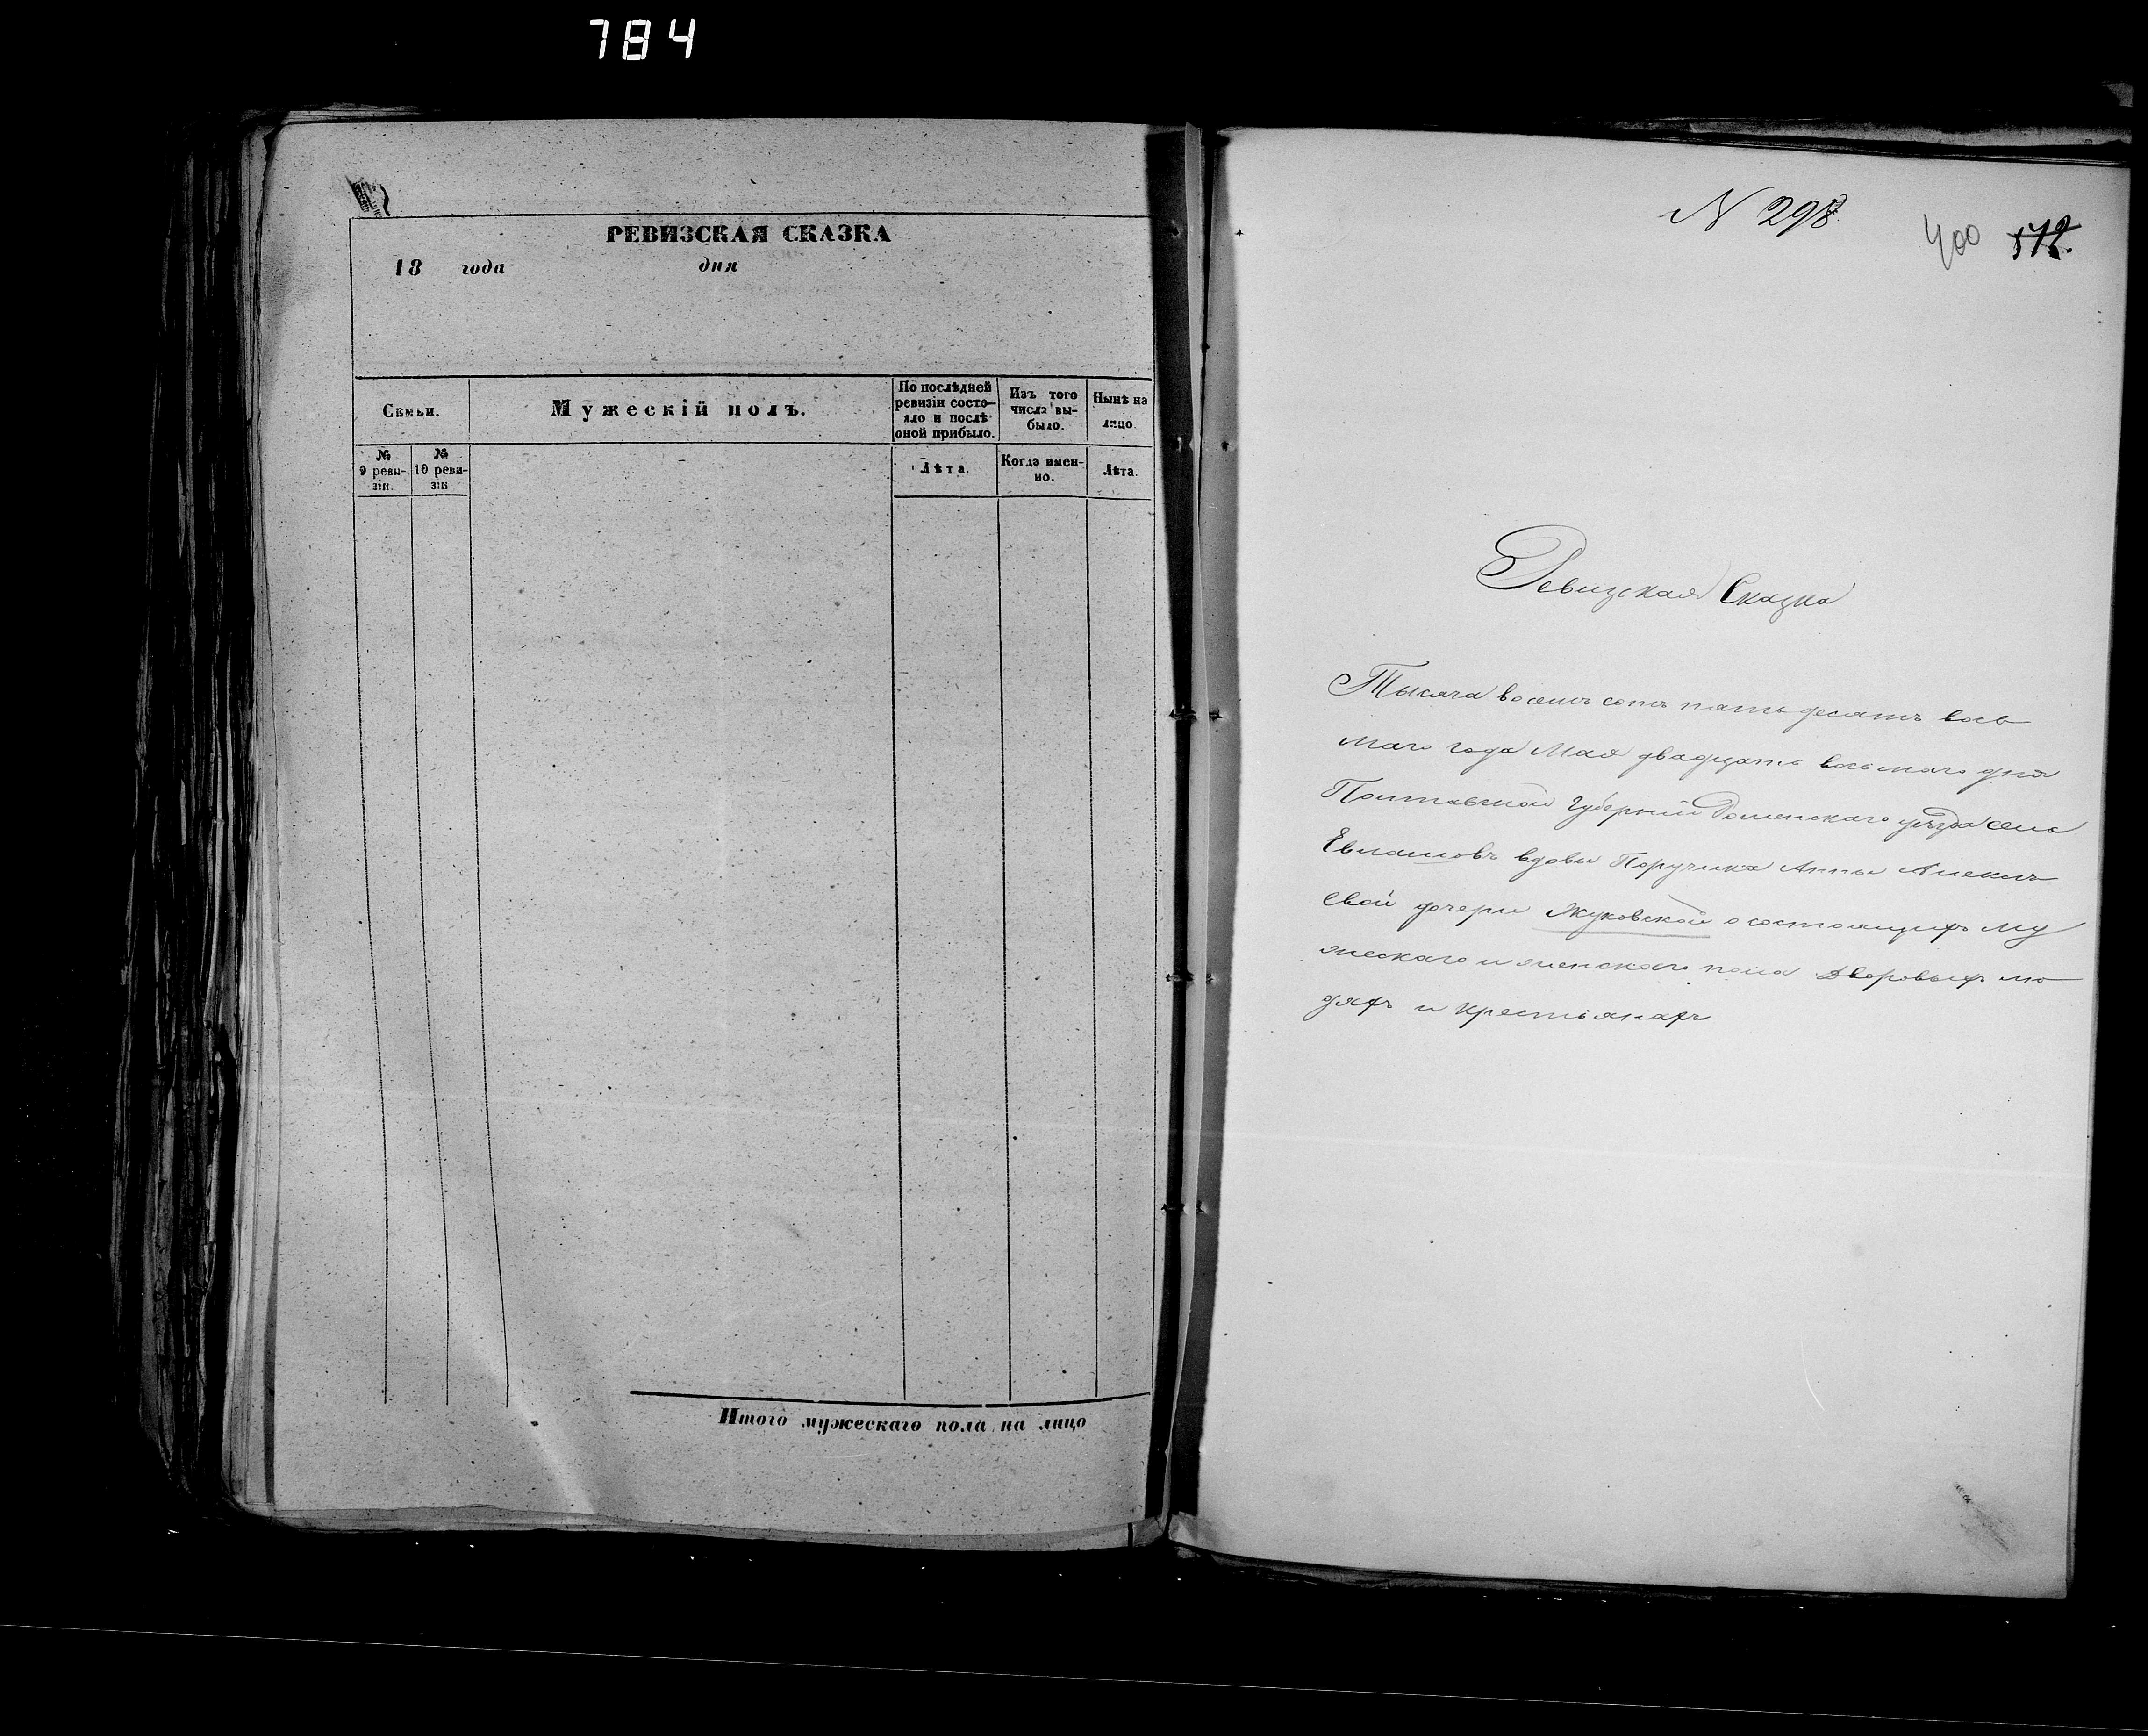 784
РЕВИЗСКАЯ СКАЗКА
18 года дня
Семьи.
Мужескій полъ.
По послѣдней
ревизіи состо-
яло и послѣ
оной прибыло.
Изъ того
числа вы-
было.
Нынѣ на
лицо.
№
9 реви-
зіи.
№
10 реви-
зіи
Лѣта.
Когда имен-
но.
Лѣта.
Итого мужескаго пола на лицо
N 298.
400 512.
Ревизская Сказка
Тысяча восемъ сотъ пять десятъ вось
маго года Мая двадцать восьмаго дня
Полтавской Губерніи Роменскаго уѣзда села
вдовы Поручика Анны Алексѣ
евой дочери Жуковской о состоящихъ му
жескаго и женскаго пола Дворовыхъ лю
дяхъ и крестьянахъ